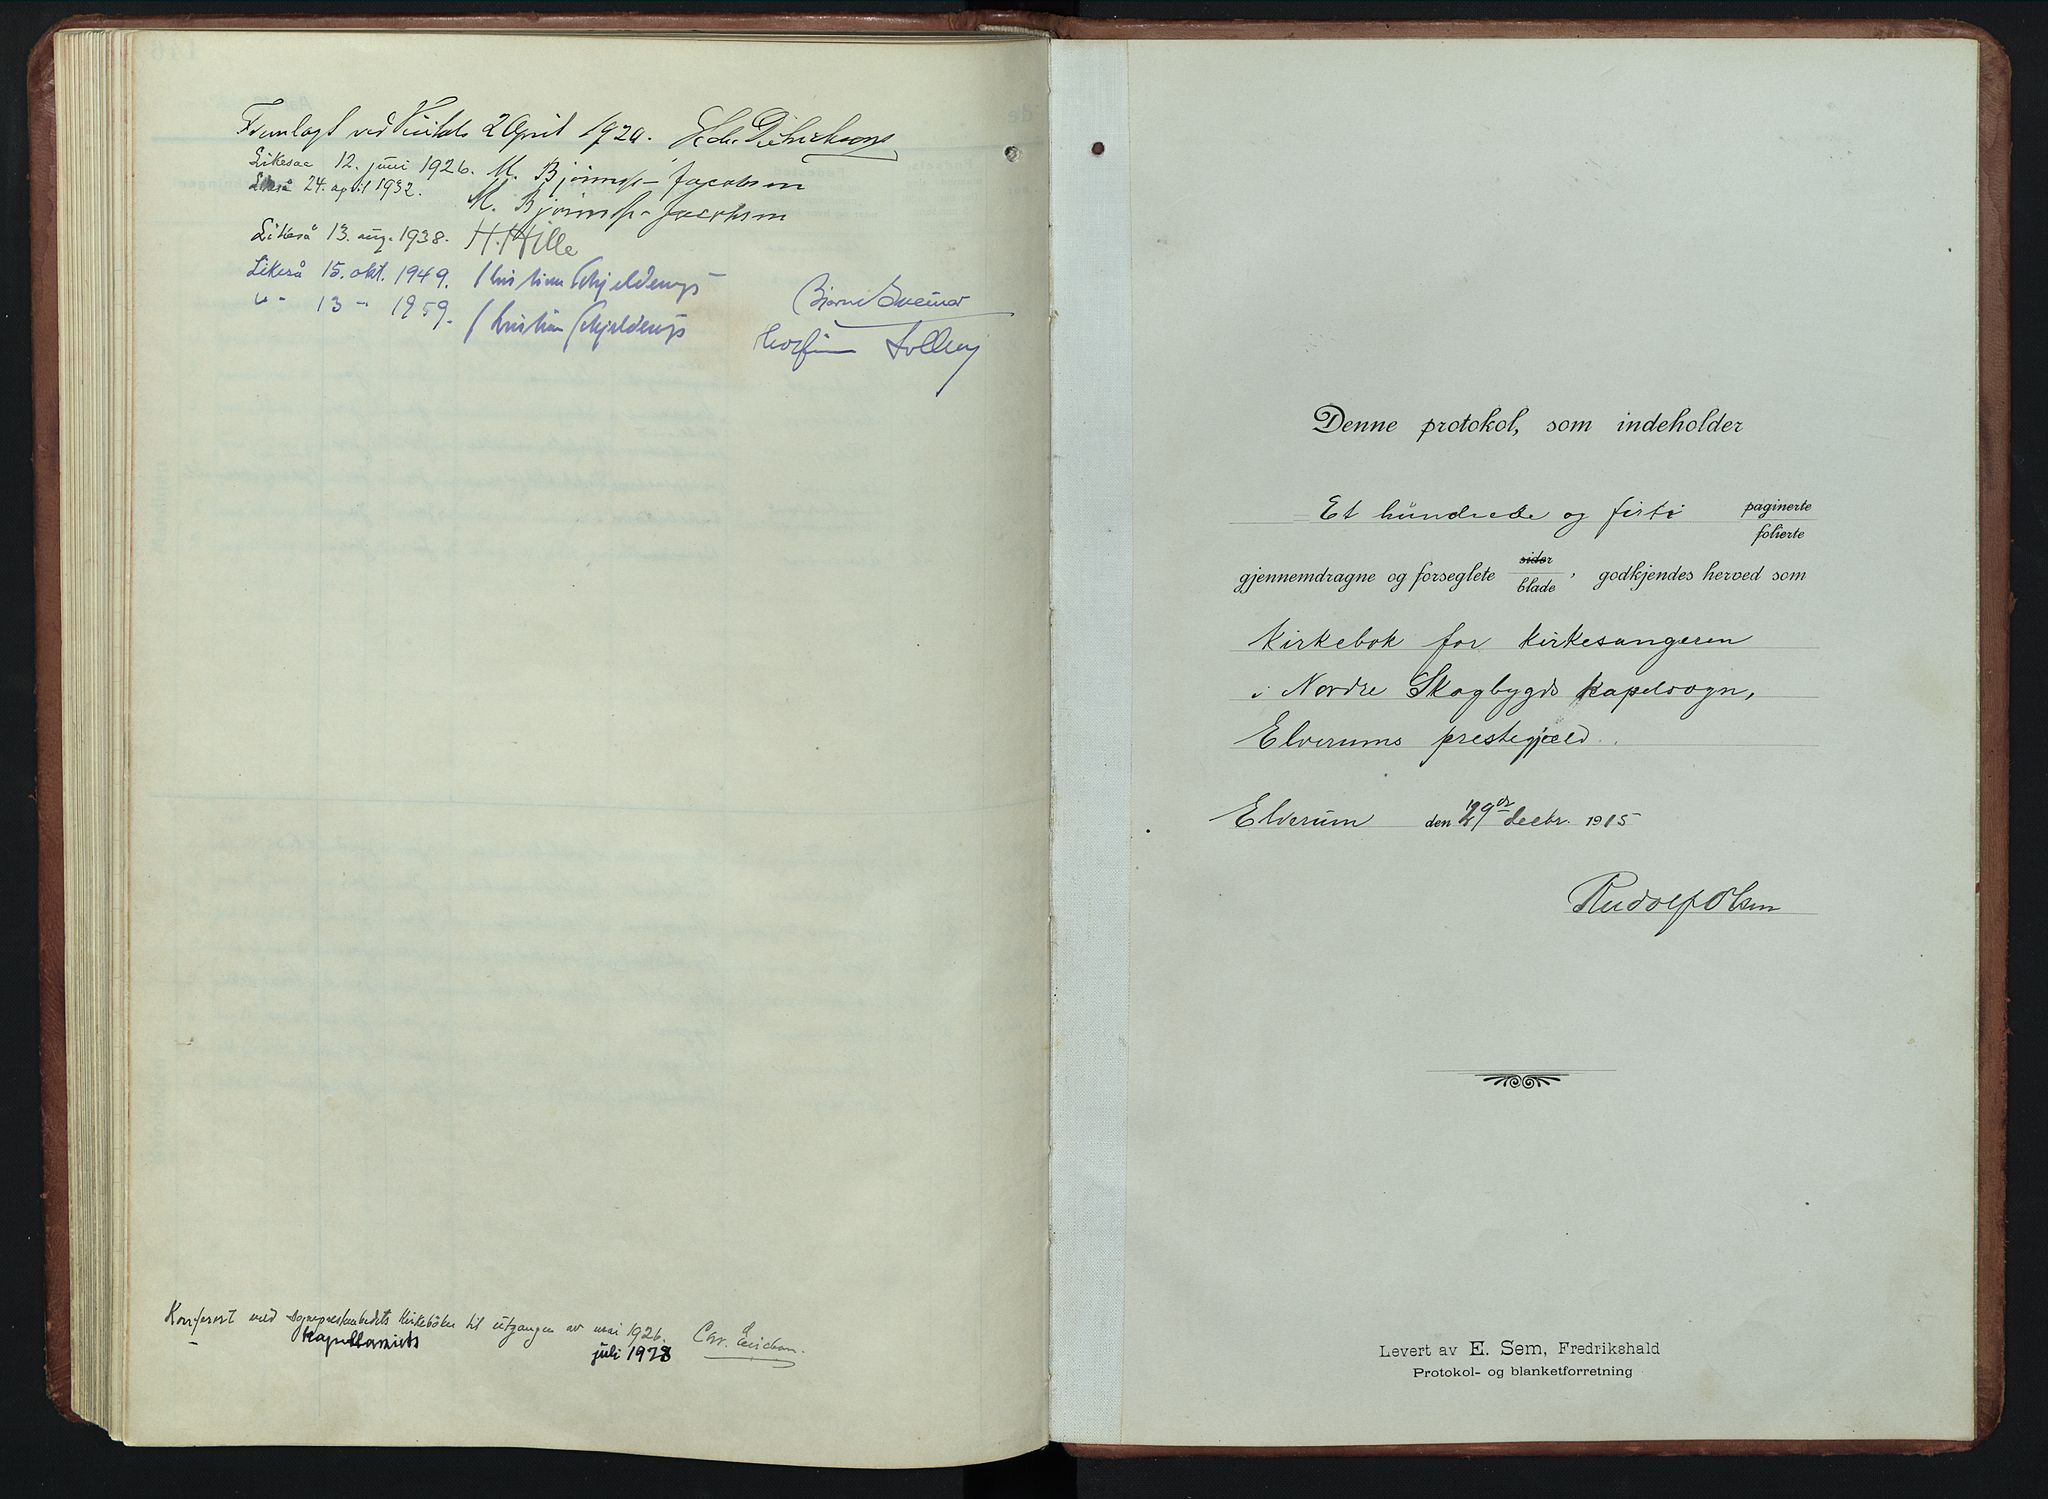 Fremlagt ved Visitats 2 April 1920.
Likesaa 12. juni 1926. M. Bjønness-Jacobsen
Likeså 24. april 1932. M. Bjønness-Jacobsen
Likeså 13. aug. 1938. H. Hille
Likeså 15. okt. 1949. Kristian Schjelderup
" - 13 - 1959. Kristian Schjelderup
Konferert med sogneprestembedets kirkebøker til utgangen av mai 1926.
Kapellaniets juli 1978
146
Denne protokol, som indeholder
Et hundrede og firti paginerte
folierte
gjennemdragne og forseglete sider
blade, godkjendes herved som
Kirkebok for kirkesangeren
i Nordre Skogbygds kapelsogn,
Elverums prestegjæld.
Elverum den 29de decbr. 1915
Rudolf Olsen
Levert av E. Sem, Fredrikshald
Protokol- og blanketforretning